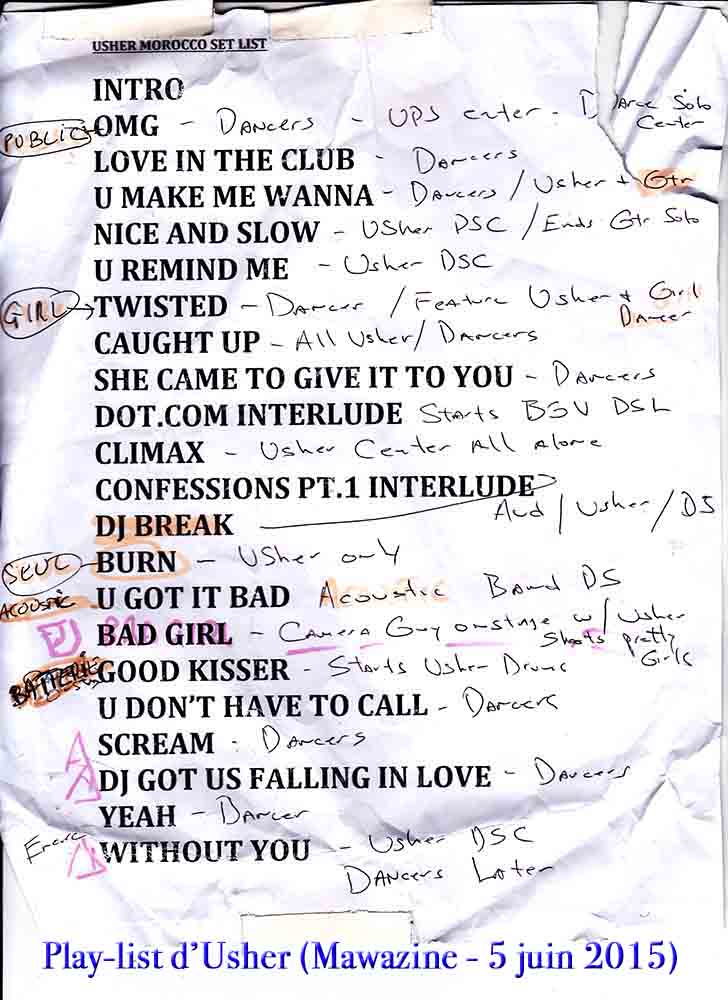 USHER MOROCCO SET LIST
INTRO
PUBLIC OMG - DANCERS - UPS center - Dance Solo Center
LOVE IN THE CLUB - Dancers
U MAKE ME WANNA - Dancers / Usher + Gtr
NICE AND SLOW - USher DSC / Ends Gtr Solo
U REMIND ME - Usher DSC
GIRL → TWISTED - Dancer / Feature Usher + Girl Dancer
CAUGHT UP - All Usher / Dancers
SHE CAME TO GIVE IT TO YOU - Dancers
DOT.COM INTERLUDE Starts BGV DSL
CLIMAX - Usher Center All Alone
CONFESSIONS PT.1 INTERLUDE
DJ BREAK Aud / Usher / DS
SEUL BURN - USher only
ACOUSTIC U GOT IT BAD Acoustic Band DS
BAD GIRL - Camera Guy onstage w/ Usher Shoots pretty Girls
BATTERIE GOOD KISSER - Starts Usher Drums
U DON'T HAVE TO CALL - Dancers
SCREAM - Dancers
DJ GOT US FALLING IN LOVE - Dancers
YEAH - Dancer
Encore WITHOUT YOU - Usher DSC
DANCERS Later
Play-list d'Usher (Mawazine - 5 juin 2015)